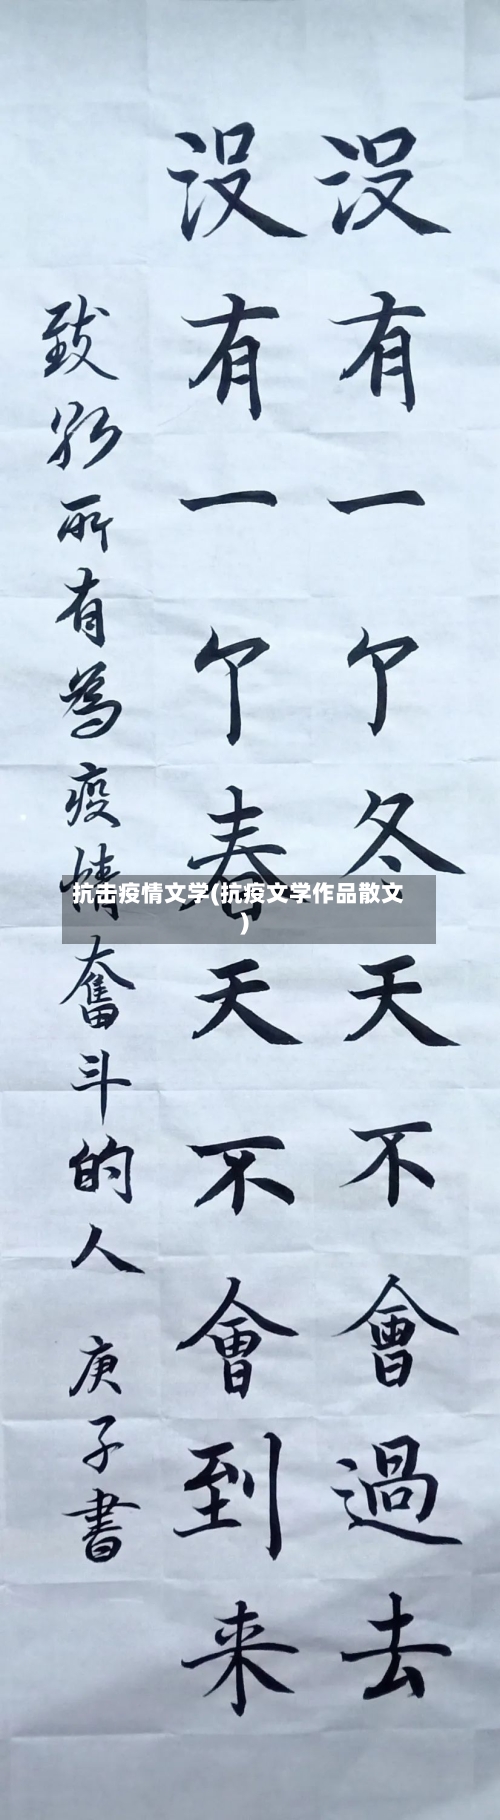 没有一个冬天不會過去
没有一个春天不會到来
致敬所有為疫情奮斗的人 庚子書
抗击疫情文学(抗疫文学作品散文
)